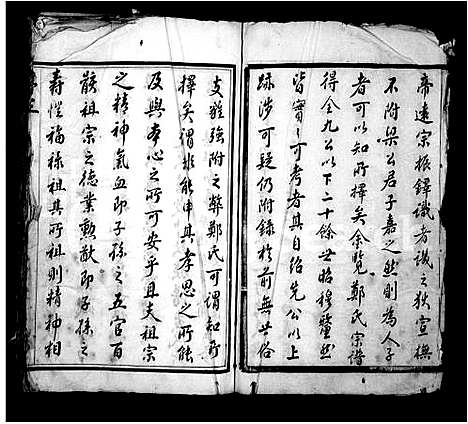 帝遠宗振鐸識者譏之狄宣撫
不附梁公君子嘉之然則為人子
者可以知所擇矣余覽鄭氏宗譜
得全九公以下二十餘世昭穆釐然
皆實之可考者其自紹先公以上
跡涉可疑仍附錄於前無世俗
支離強附之弊鄭氏可謂知所
擇矣謂非能申其孝思之所能
及與本心之所可安乎且夫祖宗
之精神氣血即子孫之五官百
骸祖宗之德業勳猷即子孫之
壽愷福祿祖其所祖則精神相